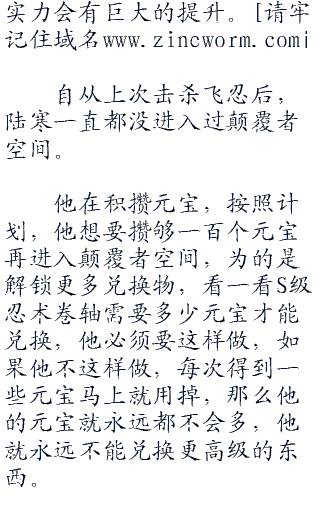 实力会有巨大的提升。[请牢
记住域名www.zincworm.com|
自从上次击杀飞忍后，
陆寒一直都没进入过颠覆者
空间。
他在积攒元宝，按照计
划，他想要攒够一百个元宝
再进入颠覆者空间，为的是
解锁更多兑换物，看一看S级
忍术卷轴需要多少元宝才能
兑换，他必须要这样做，如
果他不这样做，每次得到一
些元宝马上就用掉，那么他
的元宝就永远都不会多，他
就永远不能兑换更高级的东
西。